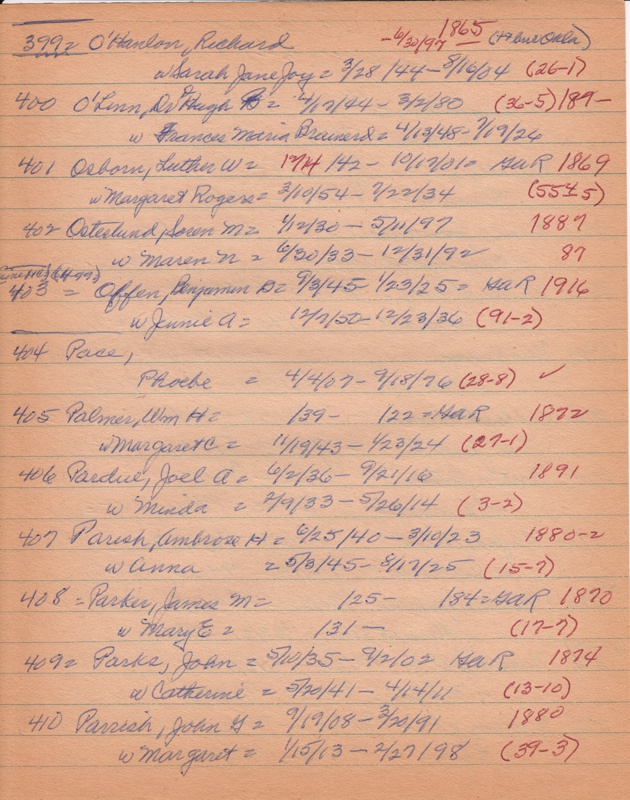 1865
399= O'Hanlon, Richard -6/30/97
w Sarah Jane Joy = 3/28/44-8/16/04 (26-1)
400 O'Linn, Dr Hugh B= 4/12/44-3/2/80 (36-5) 189-
w Frances Maria Brainerd= 4/13/48-7/19/26
401 Osborn, Luther W= /42- 10/12/01= GAR 1869
w Margaret Rogers= 3/10/54-7/22/34 (55 5)
402 Osterlund, Soren M= 1/12/30-5/11/97 1887
w Maren N= 6/30/33-12/31/92 87
403 = Offen, Benjamin B= 9/3/45 1/23/25= GAR 1916
w Jennie A= 12/2/50-12/23/36 (91-2)
404 Pace,
Phoebe = 4/4/07-9/18/76 (28-8) ✓
405 Palmer, Wm H= /39- /22=GAR 1872
w Margaret C= 11/19/43-1/23/24 (27-1)
406 Pardue, Joel A= 6/2/36-9/21/16 1891
w Minda = 2/9/33-5/26/14 (3-2)
407 Parish, Ambrose H= 6/25/40-3/10/23 1880-2
w Anna = 5/3/45-8/17/25 (15-7)
408 = Parker, James M= /25- /84=GAR 1870
w Mary E= /31- (17-7)
409= Parks, John = 5/10/35-9/2/02 GAR 1874
w Catherine = 5/20/41-4/14/11 (13-10)
410 Parrish, John G= 9/19/08-3/20/91 1880
w Margaret= 1/15/13-2/27/98 (39-3)